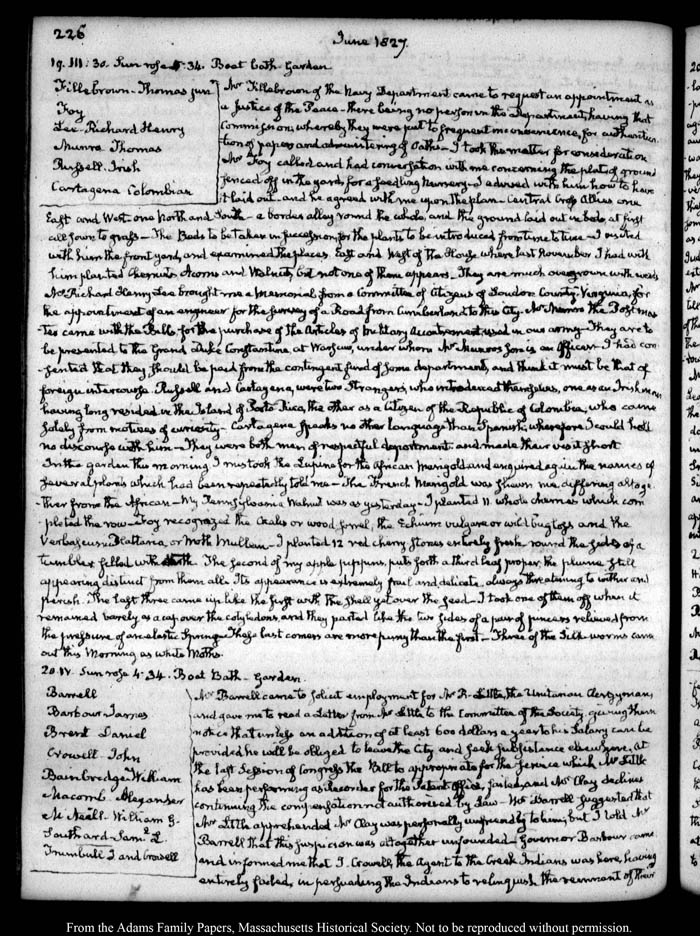 226
June 1827.
19. III: 30. Sun rose 4:34. Boat bath. Garden
Fillebrown - Thomas junr
Foy
Lee. Richard Henry
Munro Thomas
Russell. Irish
Cartagena Colombian
Mr Fillebrown of the Navy Department came to request an appointment as
a Justice of the Peace - there being no person in the Department, having that
Commission, whereby they were put to frequent inconvenience, for authentica-
tion of papers and administering of Oaths - I took the matter for consideration
Mr Foy called and had conversation with me concerning the plat of ground
fenced off in the yard, for a seedling Nursery - I advised with him how to have
it laid out - and he agreed with me upon the plan - Central Cross Allies one
East and West - one North and South - a border alley round the whole, and the ground laid out in beds at first
all sown to grass - The Beds to be taken in succession for the plants to be introduced from time to time - I visited
with him the front yard, and examined the places East and West of the House where last November I had with
him planted Chesnuts Acorns and Walnuts, but not one of them appears. They are much overgrown with weeds
Mr Richard Henry Lee brought me a Memorial from a Committee of Citizens of Loudon County Virginia, for
the appointment of an engineer for the survey of a Road from Cumberland to this City - Mr Munro the Post mas
ter came with the Bills for the purchase of the Articles of military Accoutrement used in our army - They are to
be presented to the Grand Duke Constantine, at Warsaw, under whom Mr Munro's son is an Officer - I had con
sented that they should be paid from the contingent fund of some department, and think it must be that of
foreign intercourse. Russell and Cartagena, were two Strangers, who introduced themselves, one as an Irishman
having long resided in the Island of Porto Rico, the other as a Citizen of the Republic of Colombia, who came
solely from motives of curiosity - Cartagena speaks no other language than Spanish, wherefore I could hold
no discourse with him - They were both men of respectful deportment and made their visit short
In the garden this morning I mistook the Lupine for the African Marigold and enquired again the names of
several plants which had been repeatedly told me - The French Marigold was shewn me, differing altoge-
ther from the African - My Pennsylvania Walnut was as yesterday - I planted 11 whole which com
pleted the row - Foy recognized the Oxalis or wood sorrel, the Echium vulgare or wild bugloss and the
Verbascum Blattaria, or Moth Mullein - I planted 12 red cherry stones entirely fresh round the sides of a
tumbler filled with earth. The second of my apple puppins, puts forth a third leaf proper, the plume still
appearing distinct from them all. Its appearance is extremely frail and delicate, always threatening to wither and
perish. The last three came up like the first with the shell yet over the seed - I took one of them off when it
remained barely as a cap over the cotyledons, and they parted like the two sides of a pair of pincers relieved from
the pressure of an elastic Spring. These last comers are more puny than the first - Three of the Silk-worms came
out this Morning as white Moths.
20. IV. Sun rose 4:34. Boat Bath - Garden.
Barrell
Barbour James
Brent Daniel
Crowell - John
Bainbridge William
Macomb Alexander
McNeill. William G.
Southard - Saml L.
Trumbull J. and Crowell
Mr Barrell came to solicit employment for Mr R. Little, the Unitarian Clergyman,
and gave me to read a Letter from Mr Little to the Committee of the Society, giving them
notice that unless an addition of at least 600 dollars a year to his Salary can be
provided he will be obliged to leave the City and seek subsistence elsewhere. At
the last Session of Congress the Bill to appropriate for the service which Mr Little
has been performing as Recorder for the Patent Office, failed, and Mr Clay declines
continuing the compensation not authorised by Law - Mr Barrell suggested that
Mr Little apprehended Mr Clay was personally unfriendly to him; but I told Mr
Barrell that this suspicion was altogether unfounded - Governor Barbour came
and informed me that J. Crowell, the Agent to the Creek Indians was here, having
entirely failed, in persuading the Indians to relinquish the remnant of their
From the Adams Family Papers, Massachusetts Historical Society. Not to be reproduced without permission.